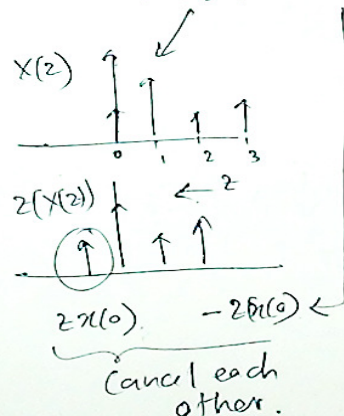 X(z)
0 1 2 3
z(X(z)) ← z
zx(0). -z(x(0)
Cancel each
other.